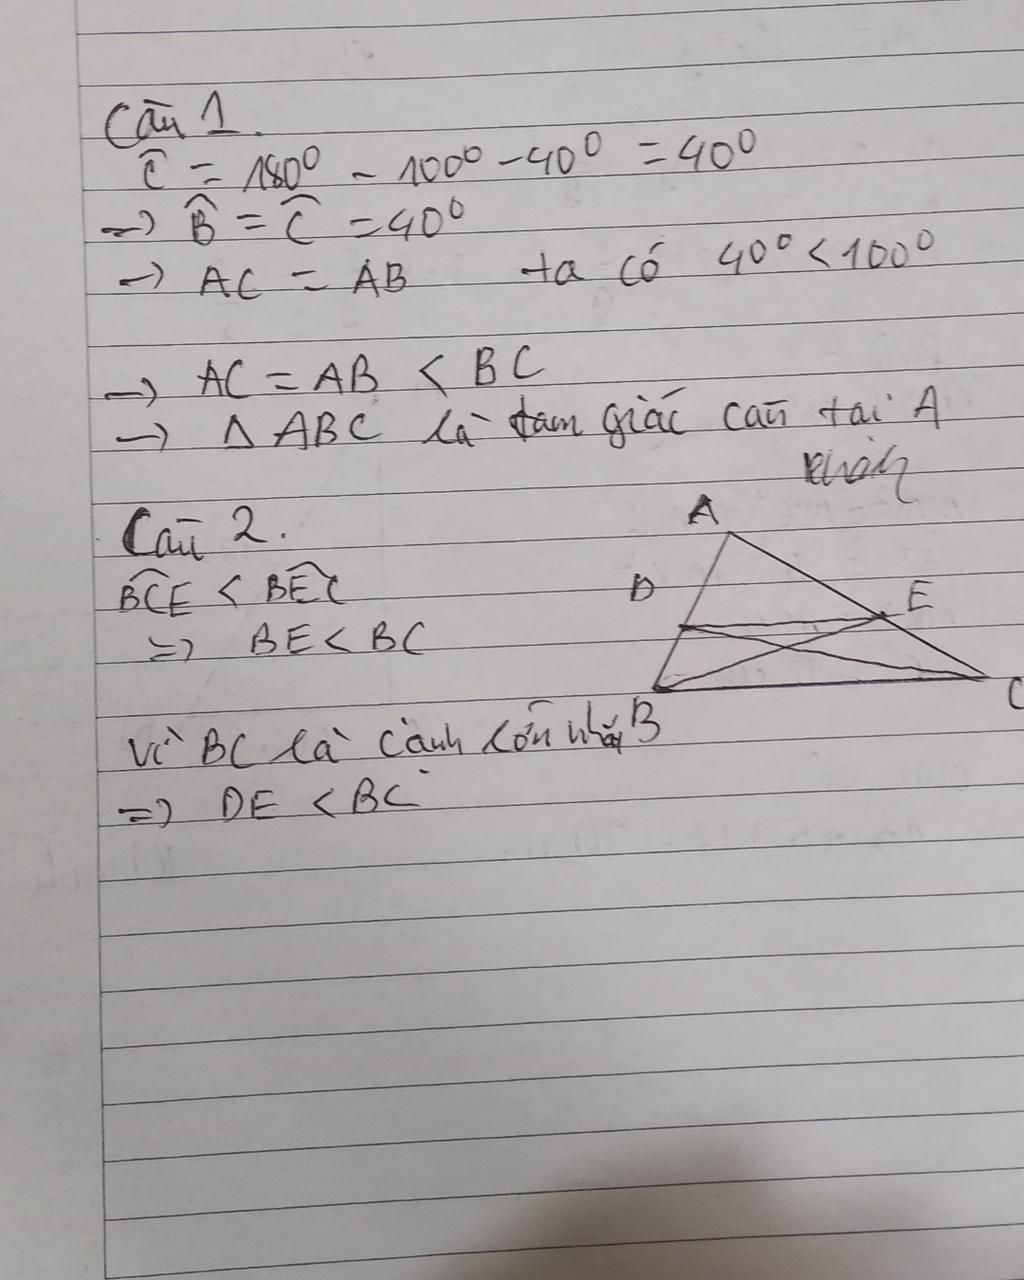 Câu 1.
Ĉ = 180⁰ - 100⁰ - 40⁰ = 40⁰
→ B̂ = Ĉ = 40⁰
→ AC = AB ta có 40⁰ < 100⁰
→ AC = AB < BC
→ Δ ABC là tam giác cân tại A
Câu 2.
A
D
E
B
C
BĈE < BÊC
=> BE < BC
Vì BC là cạnh lớn nhất
=> DE < BC